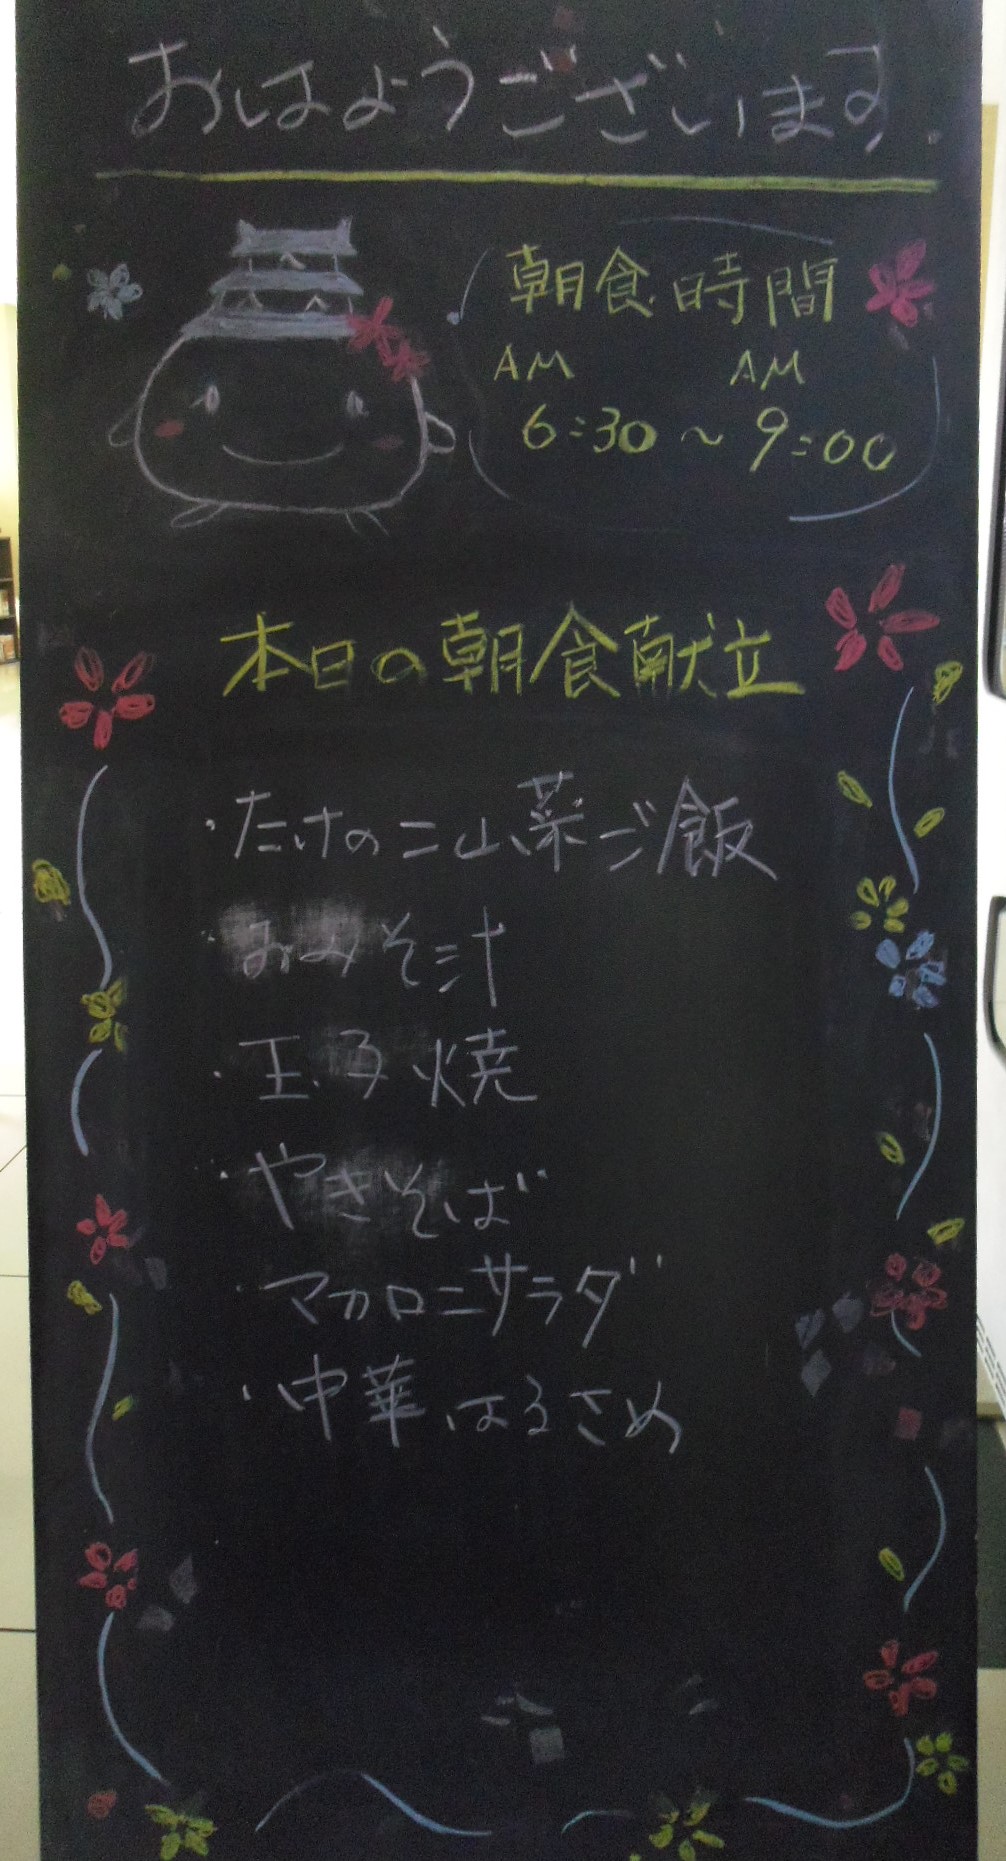 おはようございます.
朝食時間
AM AM
6:30~9:00
本日の朝食献立
・たけのこ山菜ご飯
・おみそ汁
・玉子焼
・やきそば
・マカロニサラダ
・中華はるさめ